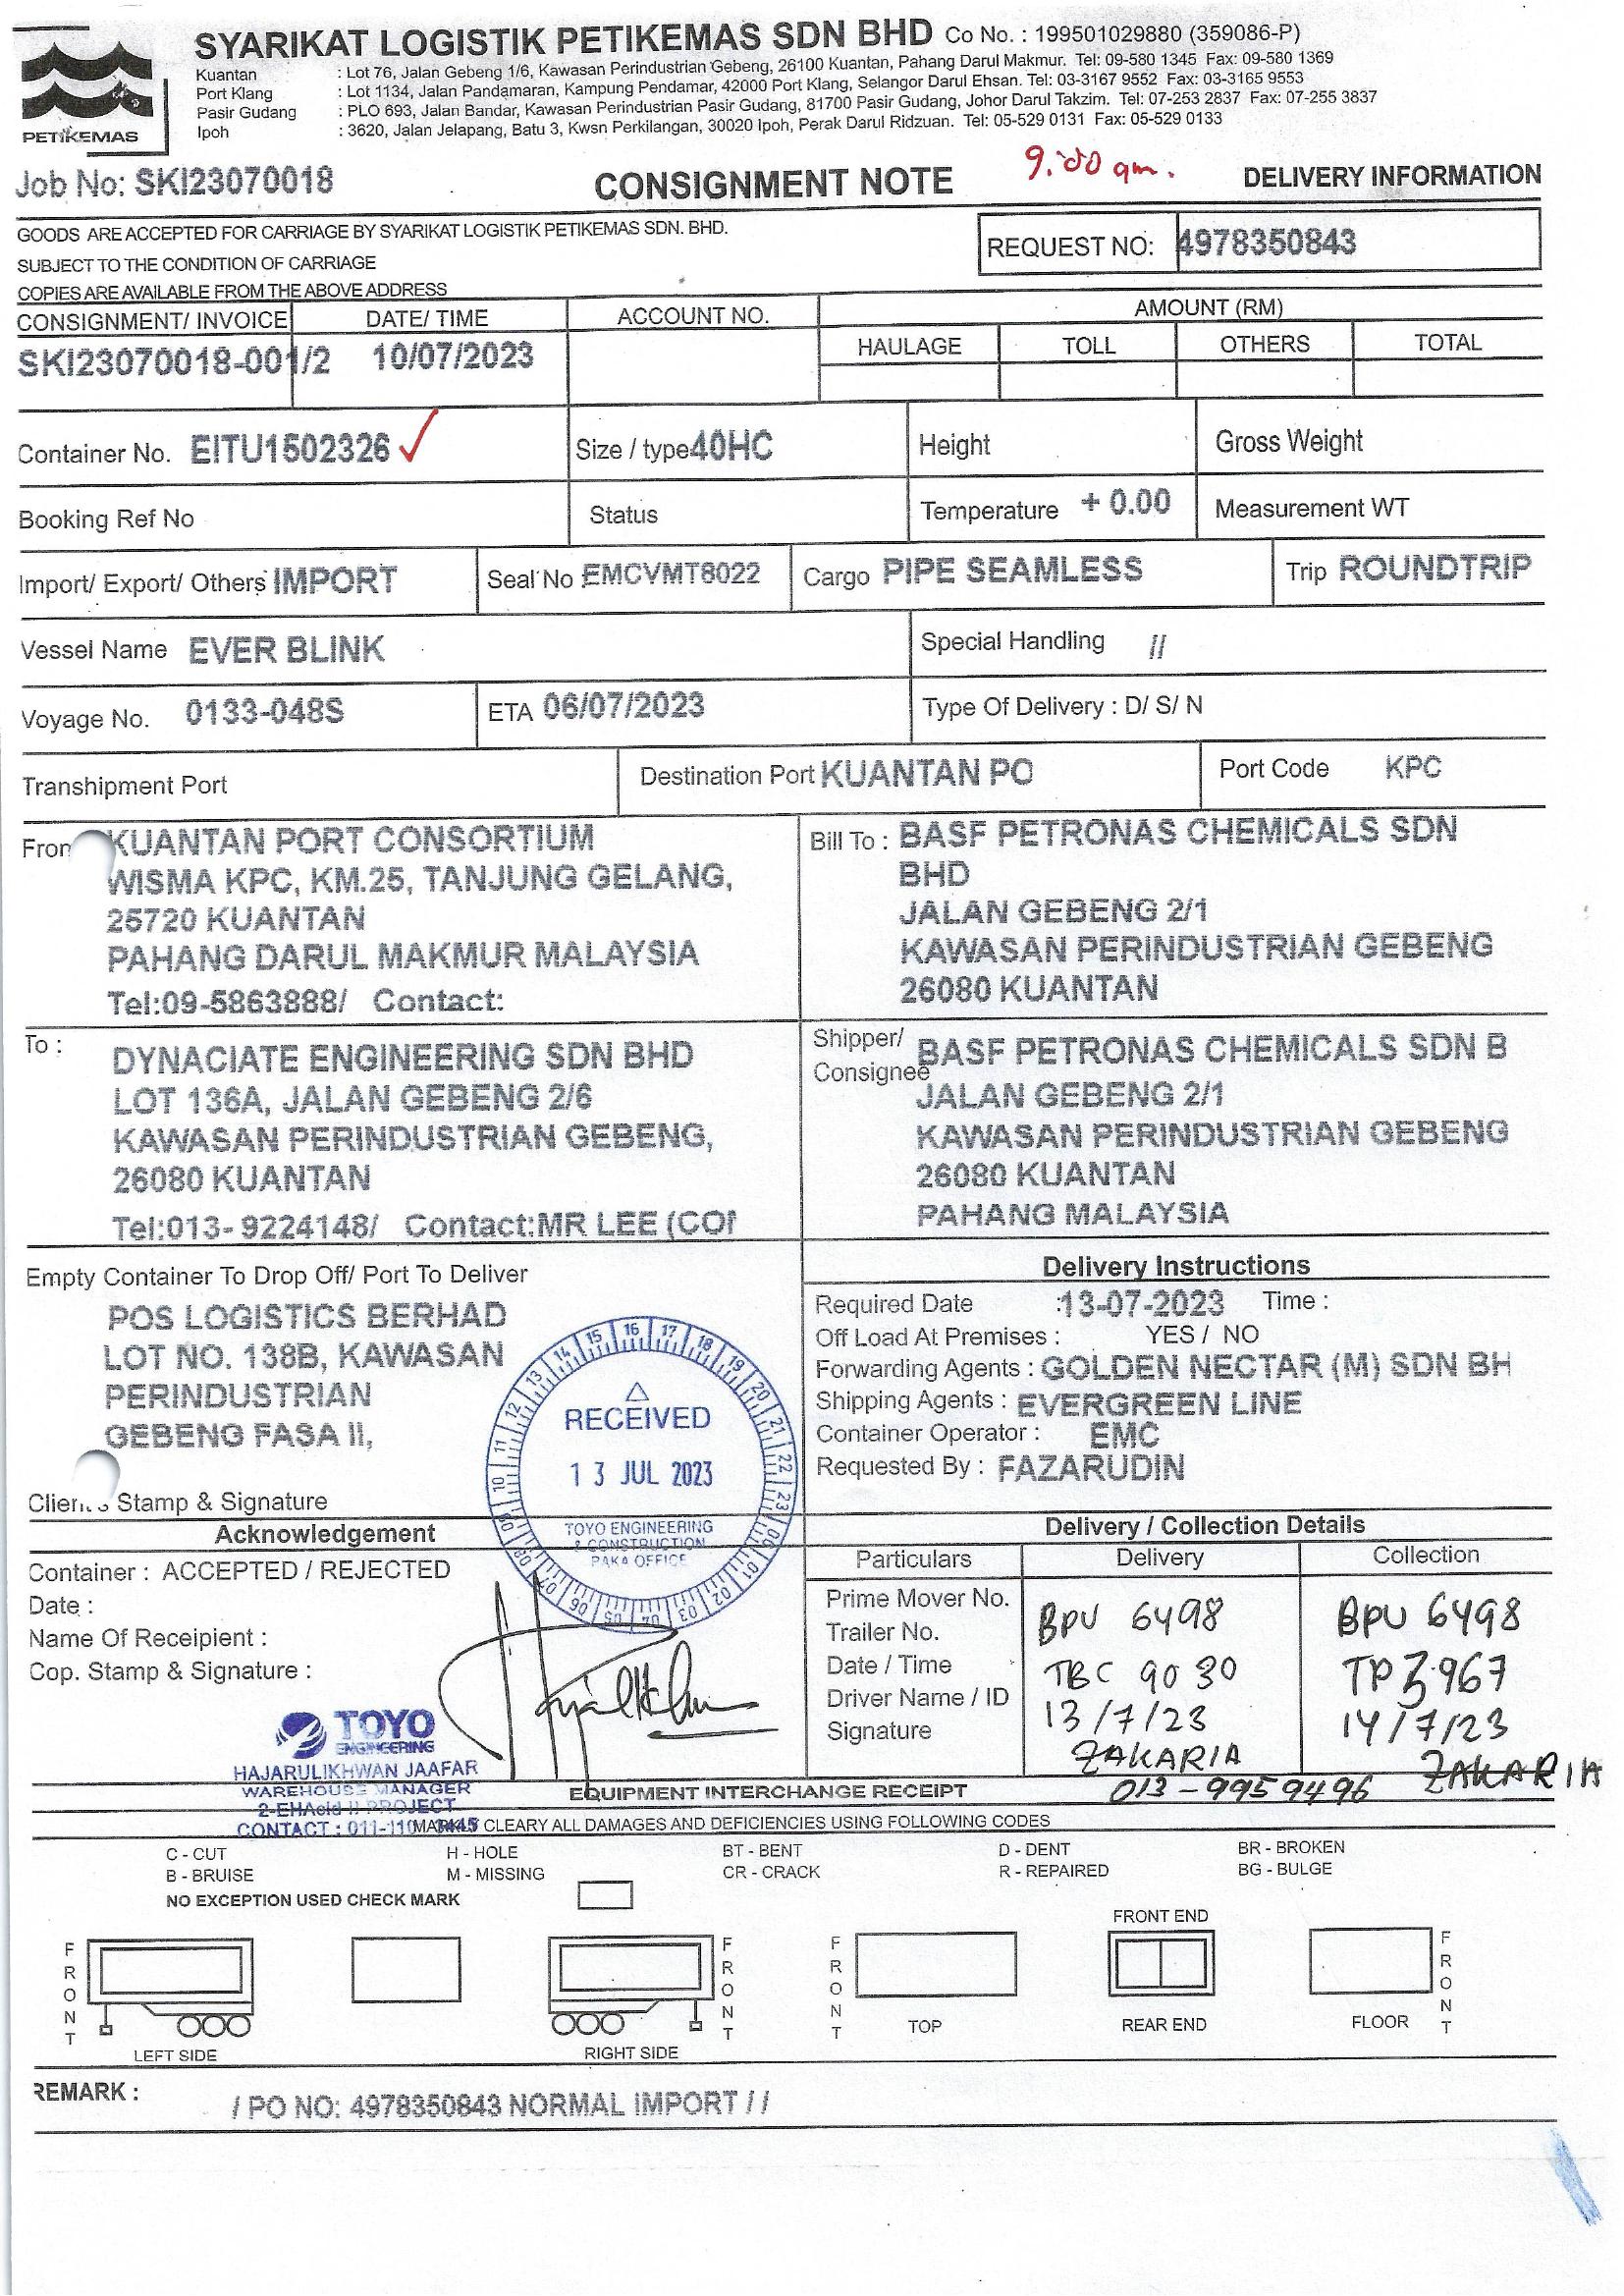 PETIKEMAS
SYARIKAT LOGISTIK PETIKEMAS SDN BHD Co No. : 199501029880 (359086-P)
Kuantan : Lot 76, Jalan Gebeng 1/6, Kawasan Perindustrian Gebeng, 26100 Kuantan, Pahang Darul Makmur. Tel: 09-580 1345 Fax: 09-580 1369
Port Klang : Lot 1134, Jalan Pandamaran, Kampung Pendamar, 42000 Port Klang, Selangor Darul Ehsan. Tel: 03-3167 9552 Fax: 03-3165 9553
Pasir Gudang : PLO 693, Jalan Bandar, Kawasan Perindustrian Pasir Gudang, 81700 Pasir Gudang, Johor Darul Takzim. Tel: 07-253 2837 Fax: 07-255 3837
Ipoh : 3620, Jalan Jelapang, Batu 3, Kwsn Perkilangan, 30020 Ipoh, Perak Darul Ridzuan. Tel: 05-529 0131 Fax: 05-529 0133
Job No: SKI23070018
CONSIGNMENT NOTE
9:00 am.
DELIVERY INFORMATION
GOODS ARE ACCEPTED FOR CARRIAGE BY SYARIKAT LOGISTIK PETIKEMAS SDN. BHD.
SUBJECT TO THE CONDITION OF CARRIAGE
COPIES ARE AVAILABLE FROM THE ABOVE ADDRESS
REQUEST NO: 4978350843
CONSIGNMENT/ INVOICE DATE/ TIME ACCOUNT NO. AMOUNT (RM)
HAULAGE TOLL OTHERS TOTAL
SKI23070018-001/2 10/07/2023
Container No. EITU1502326 ✓ Size / type 40HC Height Gross Weight
Booking Ref No Status Temperature + 0.00 Measurement WT
Import/ Export/ Others IMPORT Seal No EMCVMT8022 Cargo PIPE SEAMLESS Trip ROUNDTRIP
Vessel Name EVER BLINK Special Handling //
Voyage No. 0133-048S ETA 06/07/2023 Type Of Delivery : D/ S/ N
Transhipment Port Destination Port KUANTAN PO Port Code KPC
From KUANTAN PORT CONSORTIUM
WISMA KPC, KM.25, TANJUNG GELANG,
25720 KUANTAN
PAHANG DARUL MAKMUR MALAYSIA
Tel:09-5863888/ Contact:
Bill To : BASF PETRONAS CHEMICALS SDN
BHD
JALAN GEBENG 2/1
KAWASAN PERINDUSTRIAN GEBENG
26080 KUANTAN
To : DYNACIATE ENGINEERING SDN BHD
LOT 136A, JALAN GEBENG 2/6
KAWASAN PERINDUSTRIAN GEBENG,
26080 KUANTAN
Tel:013- 9224148/ Contact:MR LEE (CO
Shipper/
Consignee BASF PETRONAS CHEMICALS SDN B
JALAN GEBENG 2/1
KAWASAN PERINDUSTRIAN GEBENG
26080 KUANTAN
PAHANG MALAYSIA
Empty Container To Drop Off/ Port To Deliver
POS LOGISTICS BERHAD
LOT NO. 138B, KAWASAN
PERINDUSTRIAN
GEBENG FASA II,
Client's Stamp & Signature
RECEIVED
13 JUL 2023
TOYO ENGINEERING
& CONSTRUCTION
PAKA OFFICE
Delivery Instructions
Required Date :13-07-2023 Time :
Off Load At Premises : YES / NO
Forwarding Agents : GOLDEN NECTAR (M) SDN BH
Shipping Agents : EVERGREEN LINE
Container Operator : EMC
Requested By : FAZARUDIN
Acknowledgement
Container : ACCEPTED / REJECTED
Date :
Name Of Receipient :
Cop. Stamp & Signature :
TOYO
ENGINEERING
HAJARULIKHWAN JAAFAR
WAREHOUSE MANAGER
2-EHAcid II PROJECT
CONTACT : 011-110
Delivery / Collection Details
Particulars Delivery Collection
Prime Mover No. BPU 6498 BPU 6498
Trailer No. TBC 9030 TP3967
Date / Time 13/7/23 14/7/23
Driver Name / ID ZAKARIA ZAKARIA
Signature 013-9959496
EQUIPMENT INTERCHANGE RECEIPT
CLEARY ALL DAMAGES AND DEFICIENCIES USING FOLLOWING CODES
C - CUT H - HOLE BT - BENT D - DENT BR - BROKEN
B - BRUISE M - MISSING CR - CRACK R - REPAIRED BG - BULGE
NO EXCEPTION USED CHECK MARK
FRONT
LEFT SIDE
FRONT
RIGHT SIDE
FRONT
TOP
FRONT END
REAR END
FRONT
FLOOR
REMARK : / PO NO: 4978350843 NORMAL IMPORT / /